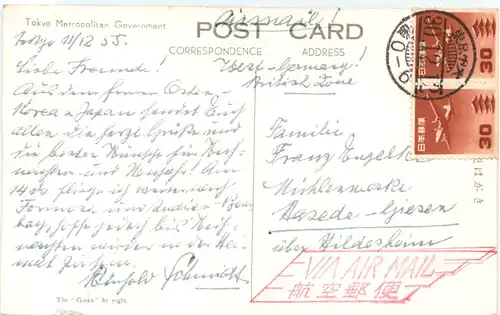 Tokyo Metropolitan Government
POST CARD
CORRESPONDENCE
ADDRESS
Airmail!
Tokyo 11/12 55.
Liebe Freunde!
Aus dem fernen Osten,
Korea u. Japan sendet Euch
allen die herzl. Grüße und
die besten Wünsche für Weih-
nachten und Neujahr! Am
14. ds fliege ich weiter nach
Formosa und Indien
hoffe jedoch bis Weih-
nachten wieder in der Hei-
mat zu sein.
Schmidt
The "Ginza" by night.
West-Germany!
British Zone
Familie
Franz Engelke
Mühlenwerke
Hasede-Giesen
über Hildesheim
VIA AIR MAIL
航空郵便
日本郵便
30
日本郵便
30
はがき